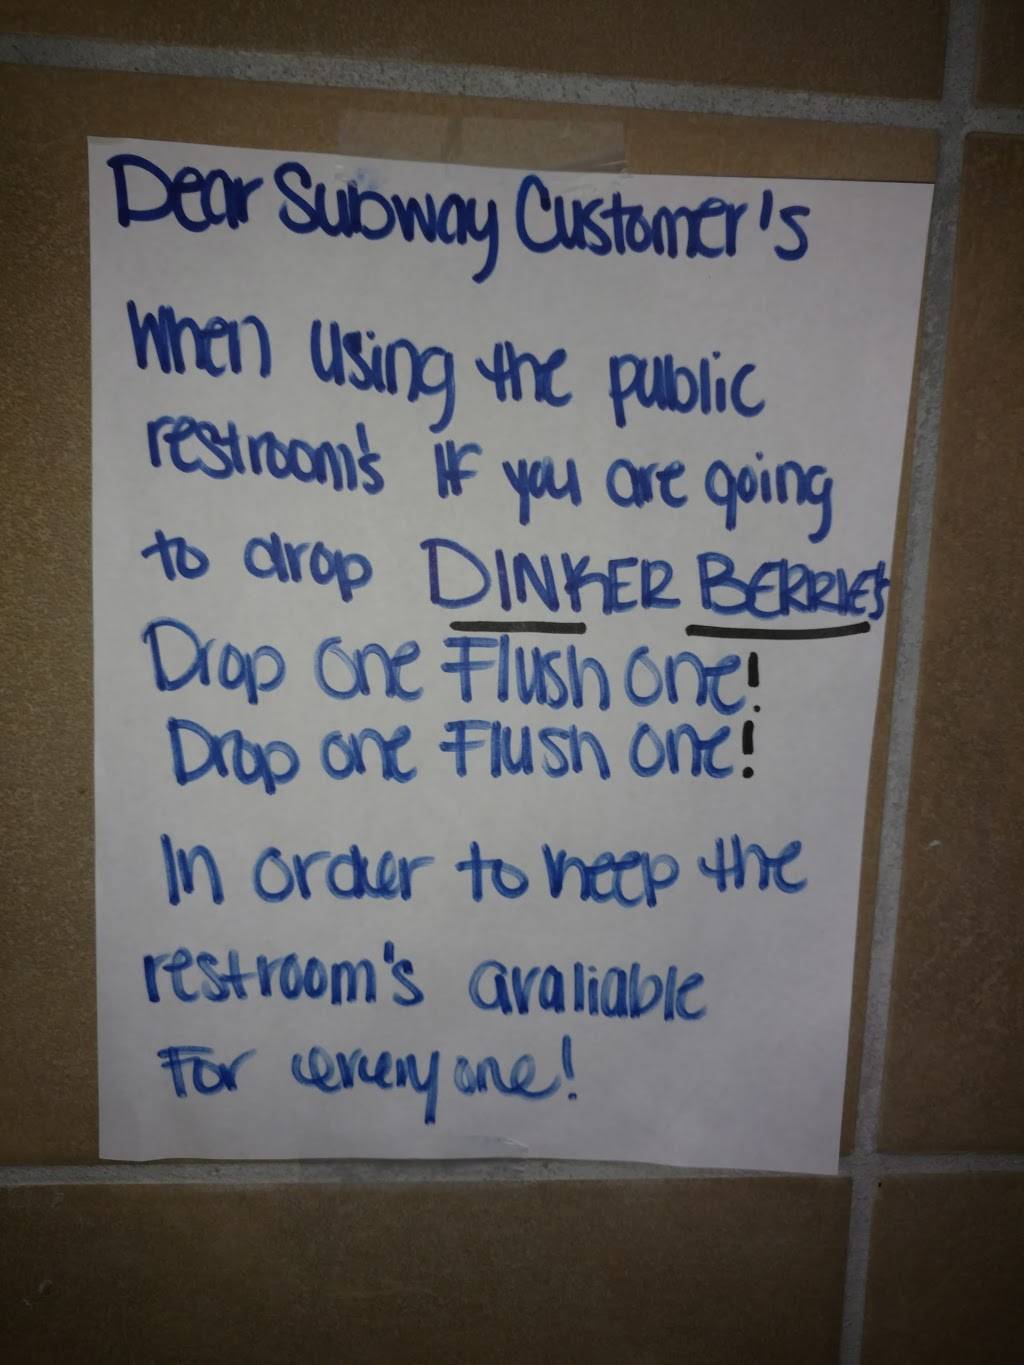 Dear Subway Customer's
When using the public
restroom's If you are going
to drop DINKER BERRIE'S
Drop one Flush one!
Drop one Flush one!
In order to keep the
restroom's avaliable
For everyone!